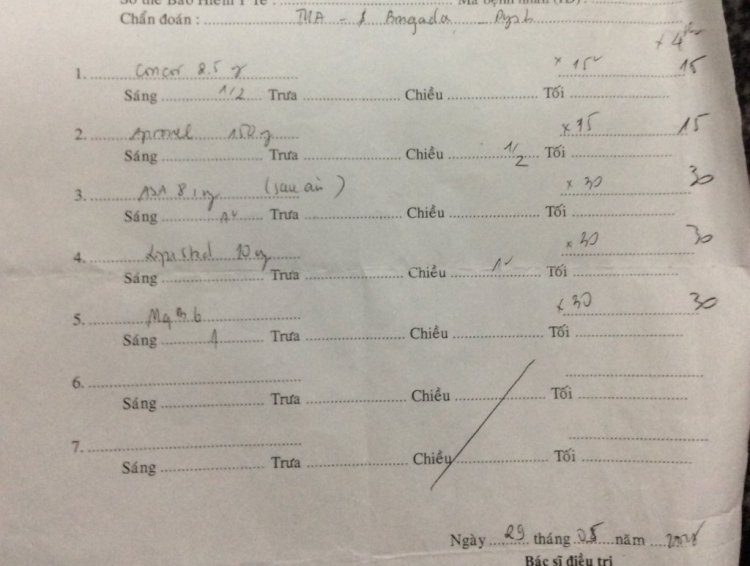 Số thẻ Bảo Hiểm Y Tế : Mã bệnh nhân (ID) :
Chẩn đoán : THA - Brugada
x 4
1. Concor 2.5 x 15 15
Sáng 1/2 Trưa Chiều Tối
2. Aprovel 150 x 15 15
Sáng Trưa Chiều 1/2 Tối
3. ASA 81 (sau ăn) x 30 30
Sáng Trưa Chiều Tối
4. 10 x 30 30
Sáng Trưa Chiều 1 Tối
5. Mg B6 x 30 30
Sáng 1 Trưa Chiều Tối
6.
Sáng Trưa Chiều Tối
7.
Sáng Trưa Chiều Tối
Ngày 29 tháng 05 năm
Bác sĩ điều trị